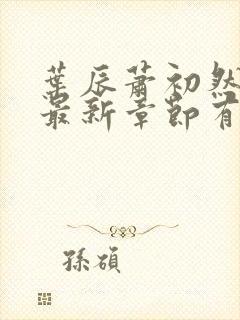 葉辰蕭初然
最新章節有
孫碩